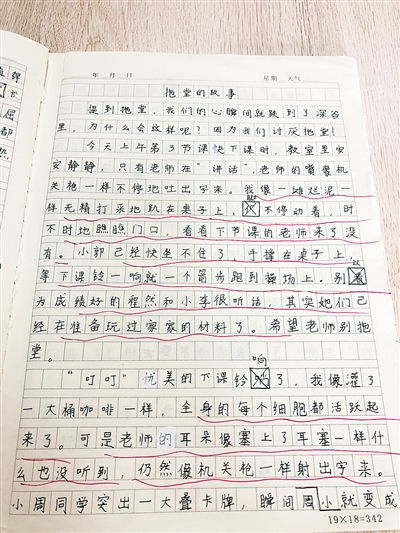 年 月 日 星期 天气
拖堂的故事
提到拖堂,我们的心瞬间就跌到了深谷
里,为什么会这样呢?因为我们讨厌拖堂!
今天上午第3节课快下课时,教室里安
安静静,只有老师在“讲话”,老师的嘴像机
关枪一样不停地吐出字来。我像一堆烂泥一
样无精打采地趴在桌子上,眼不停动着,时
不时地瞧瞧门口,看看下节课的老师来了没
有。小郭已经快坐不住了,手撑在桌子上,
等下课铃一响就一个箭步跑到操场上。别以
为成绩好的程然和小李很听话,其实她们已
经在准备玩过家家的材料了。希望老师别拖
堂。
“叮叮”优美的下课铃响了,我像灌了
一大桶咖啡一样,全身的每个细胞都活跃起
来了。可是老师的耳朵像塞上了耳塞一样什
么也没听到,仍然像机关枪一样射出字来。
小周同学突出一大叠卡牌,瞬间周小就变成
19×18=342